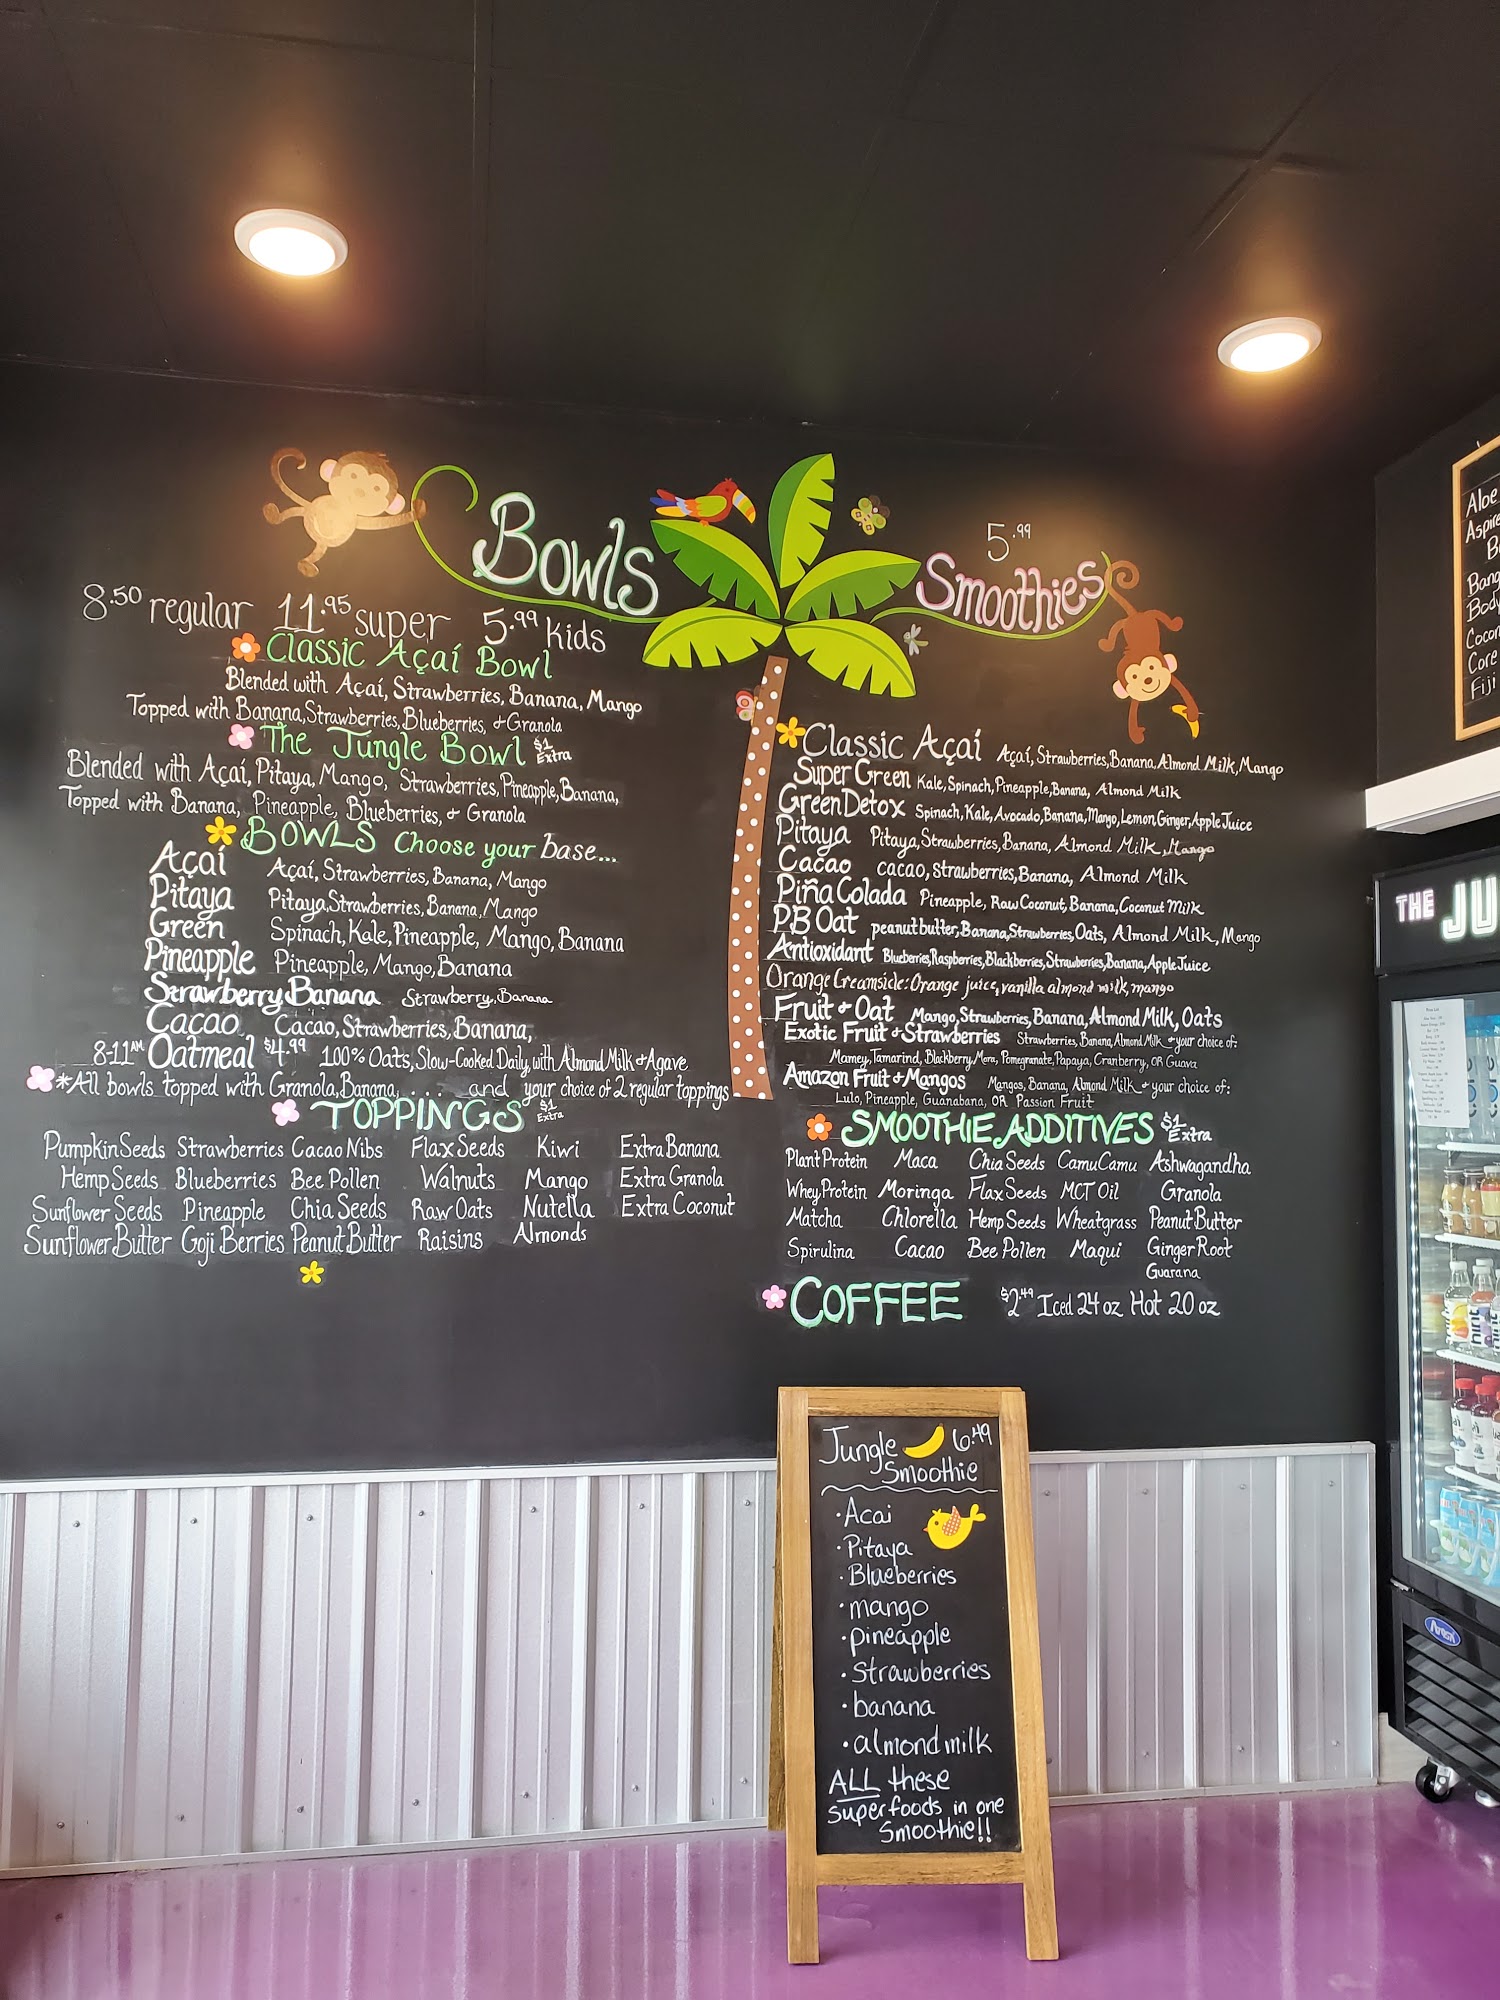 Bowls
8.50 regular 11.95 super 5.99 Kids
Classic Açaí Bowl
Blended with Açaí, Strawberries, Banana, Mango
Topped with Banana, Strawberries, Blueberries, & Granola
The Jungle Bowl $1 Extra
Blended with Açaí, Pitaya, Mango, Strawberries, Pineapple, Banana,
Topped with Banana, Pineapple, Blueberries, & Granola
BOWLS Choose your base...
Açaí Açaí, Strawberries, Banana, Mango
Pitaya Pitaya, Strawberries, Banana, Mango
Green Spinach, Kale, Pineapple, Mango, Banana
Pineapple Pineapple, Mango, Banana
Strawberry Banana Strawberry, Banana
Cacao Cacao, Strawberries, Banana,
8-11AM Oatmeal $4.99 100% Oats, Slow-Cooked Daily, with Almond Milk & Agave
*All bowls topped with Granola, Banana, .... and your choice of 2 regular toppings
TOPPINGS $1 Extra
Pumpkin Seeds Strawberries Cacao Nibs Flax Seeds Kiwi Extra Banana
Hemp Seeds Blueberries Bee Pollen Walnuts Mango Extra Granola
Sunflower Seeds Pineapple Chia Seeds Raw Oats Nutella Extra Coconut
Sunflower Butter Goji Berries Peanut Butter Raisins Almonds
5.99
Smoothies
Classic Açaí Açaí, Strawberries, Banana, Almond Milk, Mango
Super Green Kale, Spinach, Pineapple, Banana, Almond Milk
Green Detox Spinach, Kale, Avocado, Banana, Mango, Lemon, Ginger, Apple Juice
Pitaya Pitaya, Strawberries, Banana, Almond Milk, Mango
Cacao cacao, Strawberries, Banana, Almond Milk
Piña Colada Pineapple, Raw Coconut, Banana, Coconut Milk
PB Oat peanut butter, Banana, Strawberries, Oats, Almond Milk, Mango
Antioxidant Blueberries, Raspberries, Blackberries, Strawberries, Banana, Apple Juice
Orange Creamsicle: Orange juice, vanilla almond milk, mango
Fruit & Oat Mango, Strawberries, Banana, Almond Milk, Oats
Exotic Fruit & Strawberries Strawberries, Banana, Almond Milk & your choice of:
Mamey, Tamarind, Blackberry, Mora, Pomegranate, Papaya, Cranberry, OR Guava
Amazon Fruit & Mangos Mangos, Banana, Almond Milk & your choice of:
Lulo, Pineapple, Guanabana, OR Passion Fruit
SMOOTHIE ADDITIVES $1 Extra
Plant Protein Maca Chia Seeds Camu Camu Ashwagandha
Whey Protein Moringa Flax Seeds MCT Oil Granola
Matcha Chlorella Hemp Seeds Wheatgrass Peanut Butter
Spirulina Cacao Bee Pollen Maqui Ginger Root
Guarana
COFFEE $2.49 Iced 24 oz Hot 20 oz
Jungle 6.49
Smoothie
• Acai
• Pitaya
• Blueberries
• mango
• pineapple
• Strawberries
• banana
• almond milk
ALL these
superfoods in one
Smoothie!!
Aloe
Aspire
Body
Core
Fiji
THE JU
hint